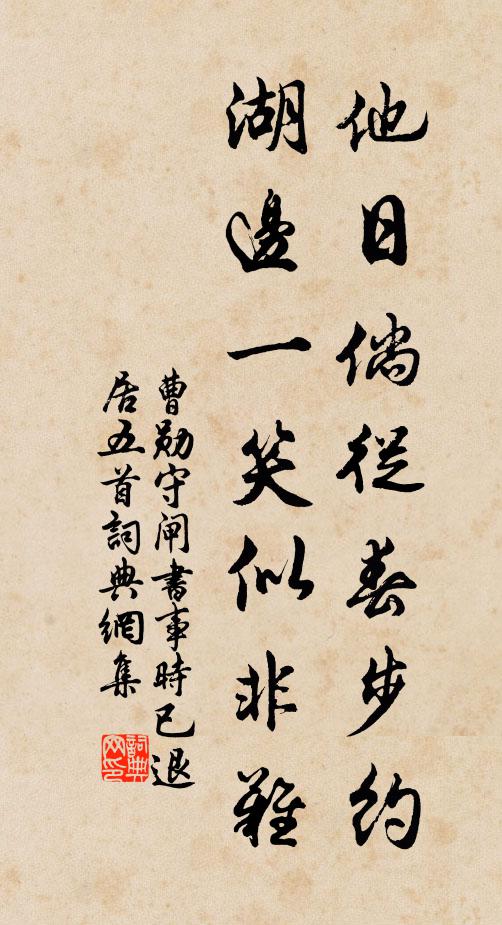 他日倘從春步約
湖邊一笑似非難
曹勛守閘書事時已退
居五首詞典網集
詞典
网印